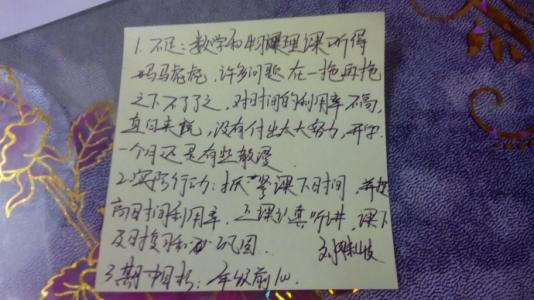 1. 不足：数学和物理课听得
马马虎虎，许多问题在一拖再拖
之下不了了之，对时间的利用率不高，
直白来说，没有付出太大努力，开学
一个月还是有些散漫
2. 实际行动：抓紧课下时间，并提
高时间利用率，上课认真听讲，课下
及时复习和巩固
3. 期中目标：年级前10.